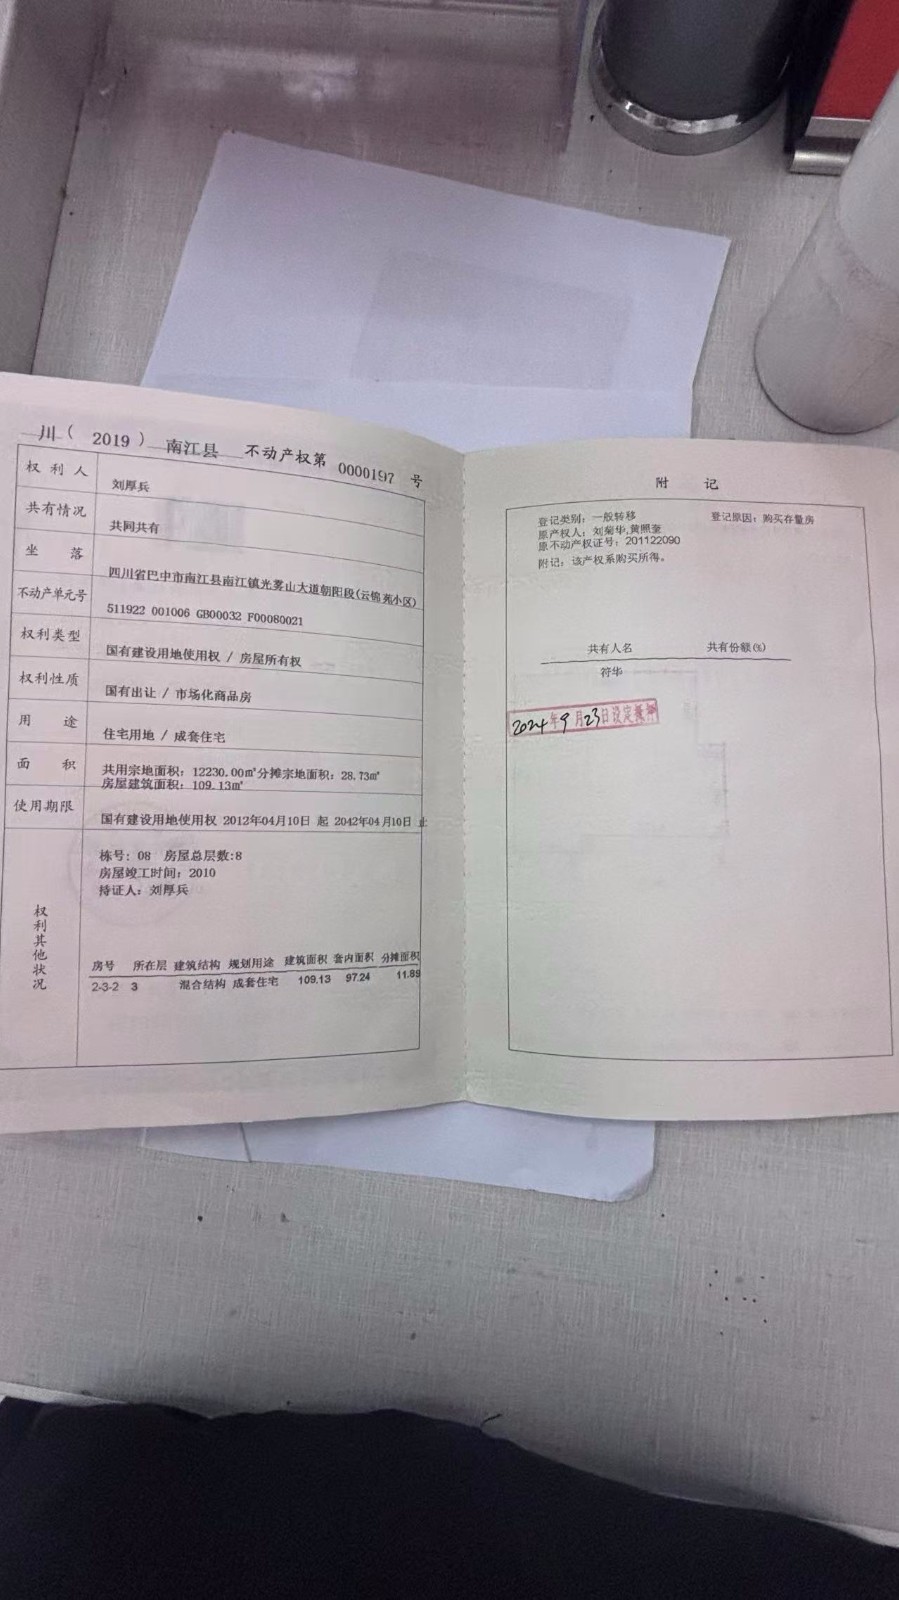 川( 2019 ) 南江县 不动产权第 0000197 号
权利人 刘厚兵
共有情况 共同共有
坐落 四川省巴中市南江县南江镇光雾山大道朝阳段(云锦苑小区)
不动产单元号 511922 001006 GB00032 F00080021
权利类型 国有建设用地使用权 / 房屋所有权
权利性质 国有出让 / 市场化商品房
用途 住宅用地 / 成套住宅
面积 共用宗地面积: 12230.00㎡分摊宗地面积: 28.73㎡
房屋建筑面积: 109.13㎡
使用期限 国有建设用地使用权 2012年04月10日 起 2042年04月10日 止
权利其他状况
栋号: 08 房屋总层数:8
房屋竣工时间: 2010
持证人: 刘厚兵
房号 所在层 建筑结构 规划用途 建筑面积 套内面积 分摊面积
2-3-2 3 混合结构 成套住宅 109.13 97.24 11.89
附记
登记类别: 一般转移 登记原因: 购买存量房
原产权人: 刘菊华,黄照奎
原不动产权证号: 201122090
附记: 该产权系购买所得。
共有人名 共有份额(%)
符华
2024年9月23日设定抵押